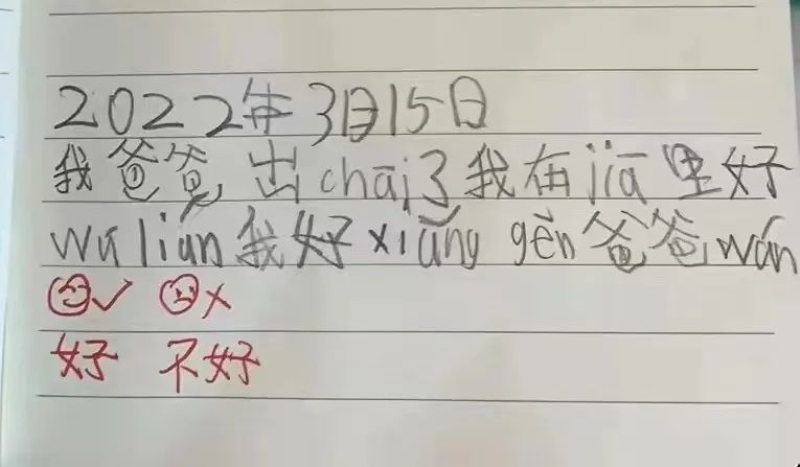 2022年3月15日
我爸爸出chāi了我在jiā里好
wú lián我好xiǎng gēn爸爸wán
✓ ×
好 不好